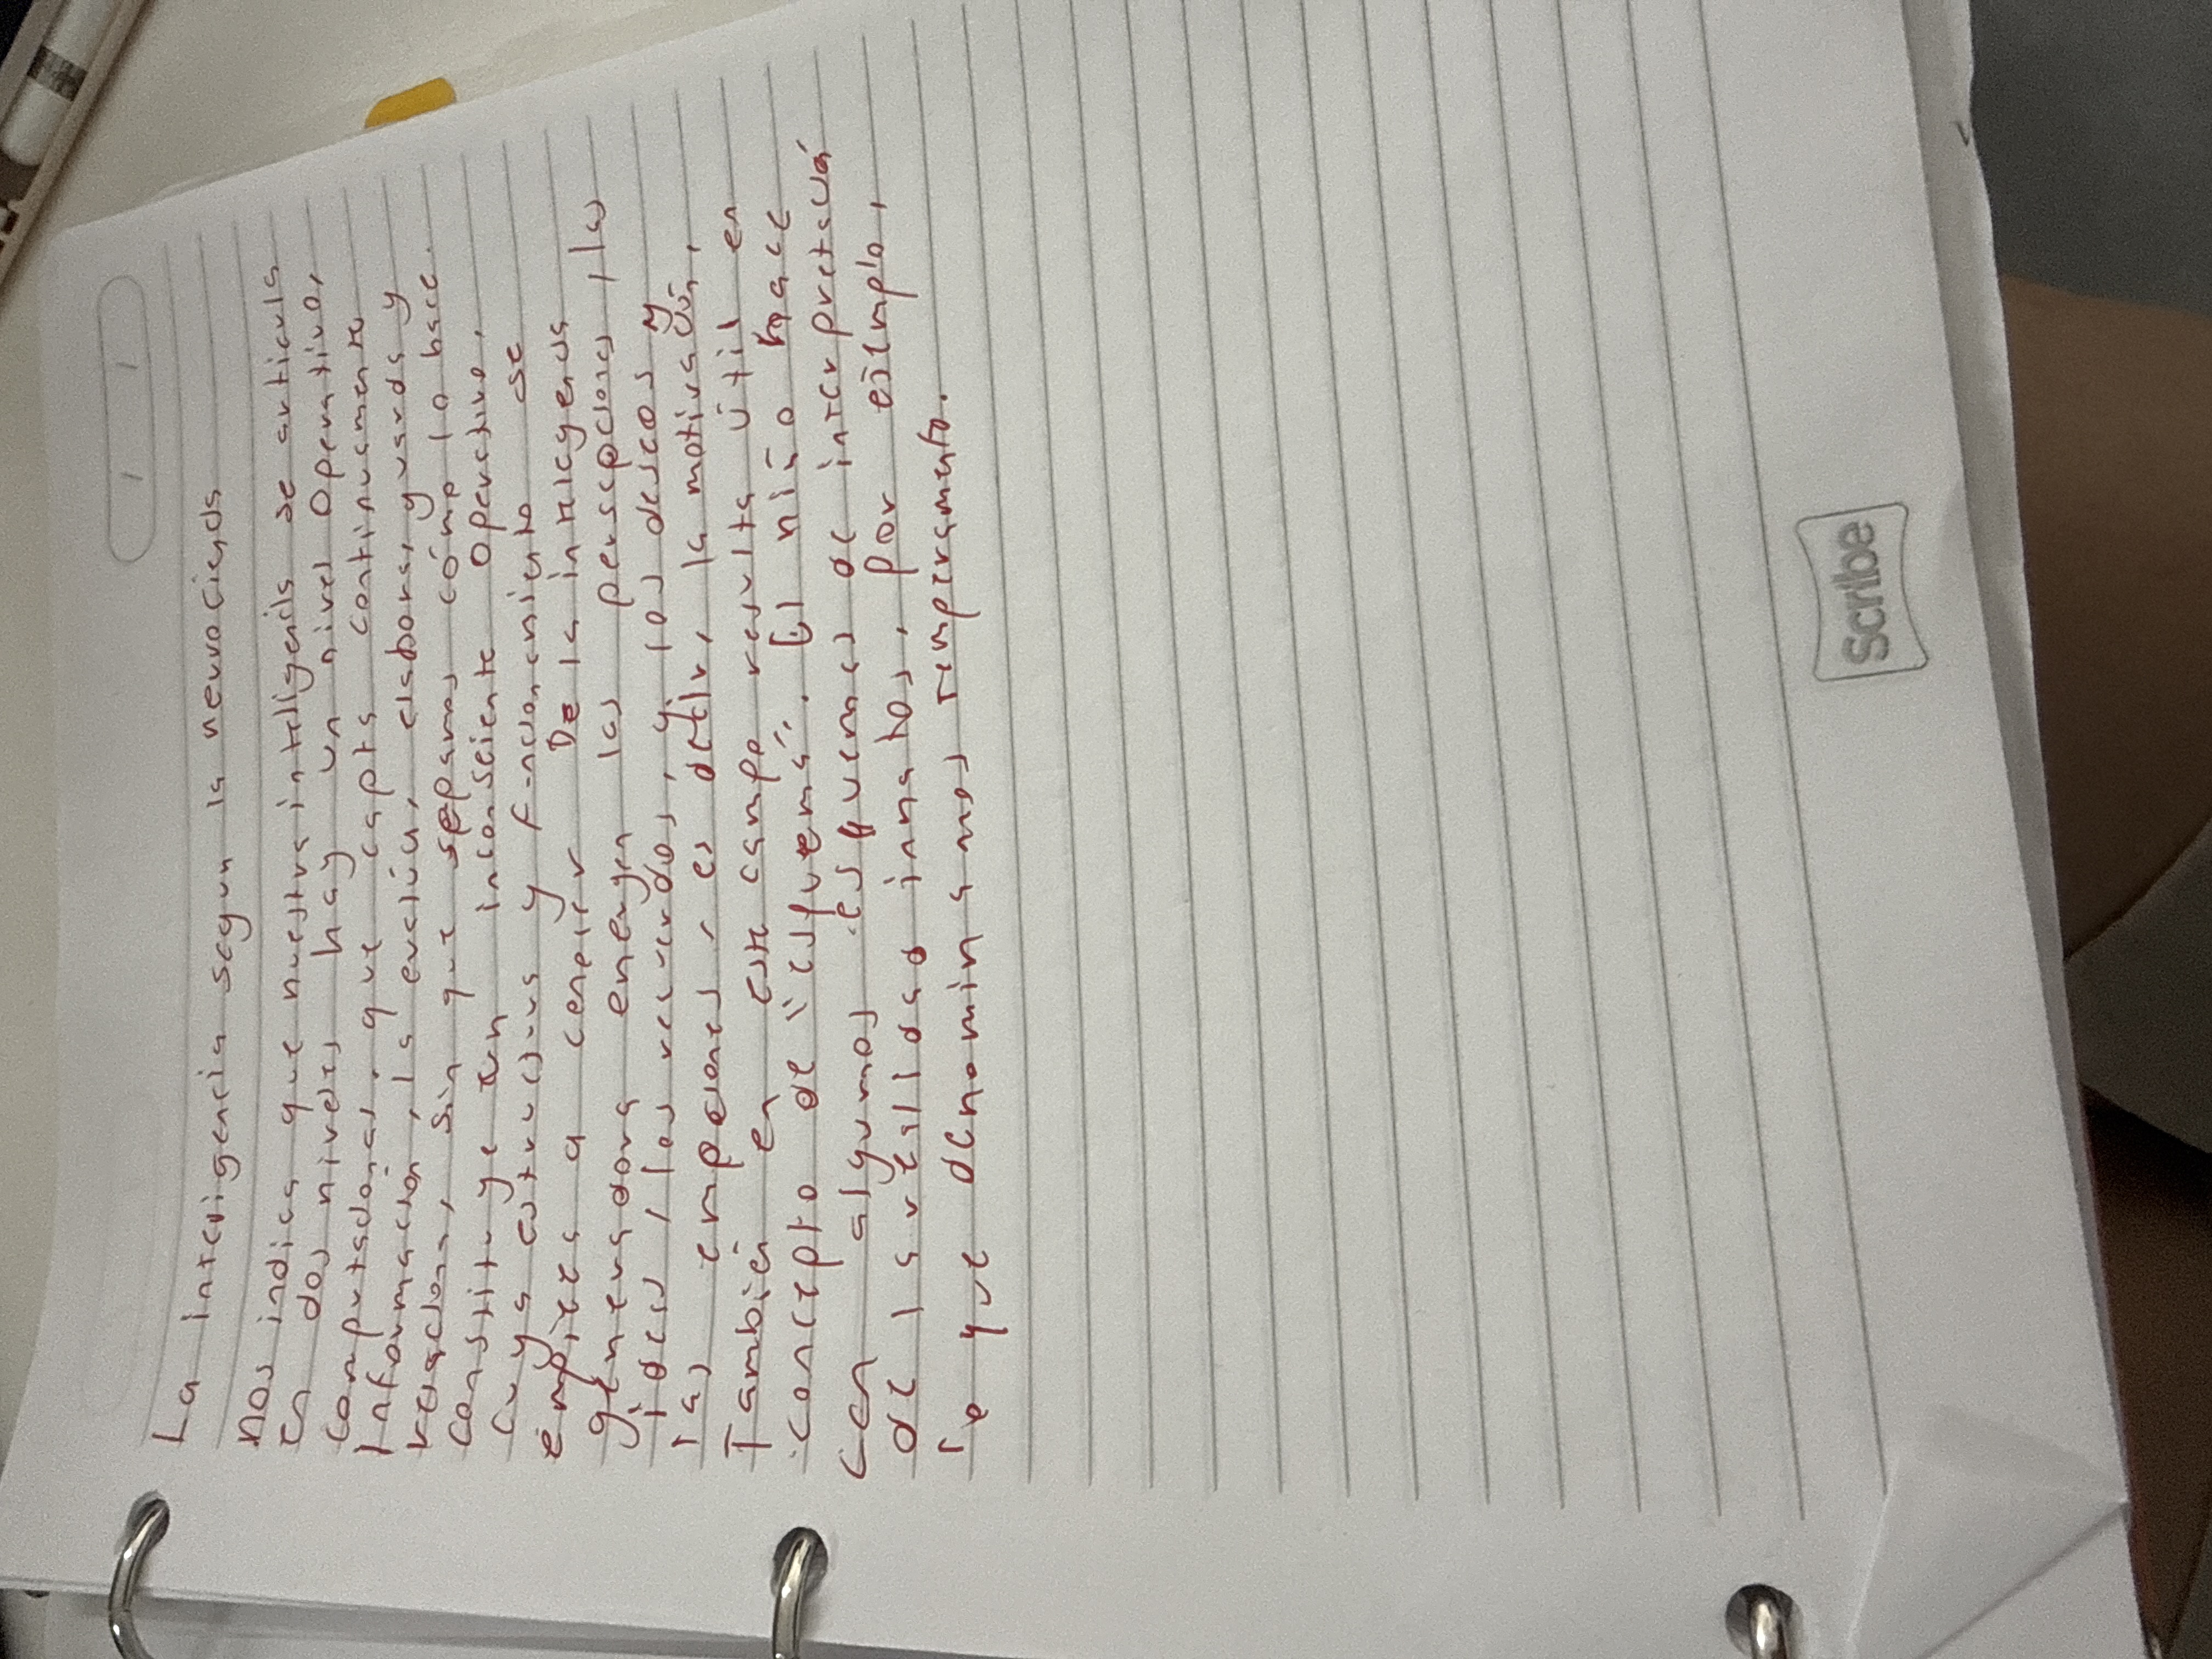 La inteligencia segun la neurociencia
Nos indica que nuestra inteligencia se articula
en dos niveles hay un nivel operativo,
computacional, que capta continuamente
Información, la evalúa, elabora, guarda y
relaciona, sin que sepamos cómo lo hace.
constituye un inconsciente operativo,
cuya estructura y funcionamiento se
empieza a conocer De la inteligencia
generadora emergen las percepciones, las
ideas, los recuerdos, y los deseos y
las emociones, es decir, la motivación,
También en este campo resulta útil en
concepto de "esquema". El niño hace
con algunos esquemas de interpretación
de la realidad innatos, por ejemplo,
lo que denominamos temperamento.
Scribe